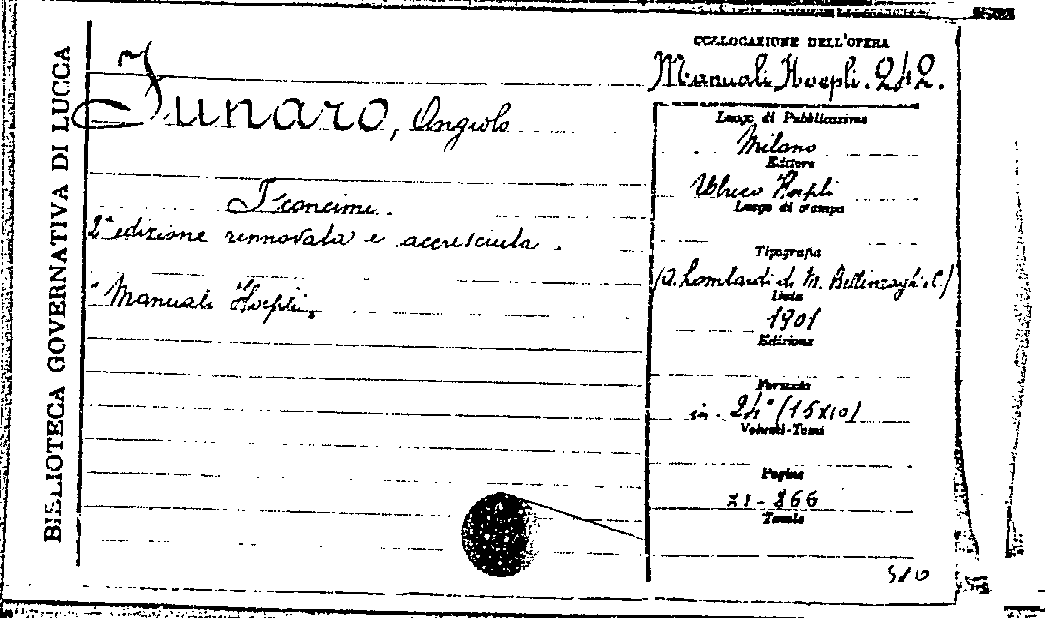 BIBLIOTECA GOVERNATIVA DI LUCCA
Funaro, Angiolo
I concimi.
2ª edizione rinnovata e accresciuta.
"Manuali Hoepli"
COLLOCAZIONE DELL'OPERA
Manuali Hoepli. 242.
Luogo di Pubblicazione
Milano
Editore
Ulrico Hoepli
Luogo di stampa
Tipografia
Lombardi di M. Bellinzaghi
Data
1901
Edizione
Formato
in 24° (15x10)
Volumi-Tomi
Pagine
266
Tavole